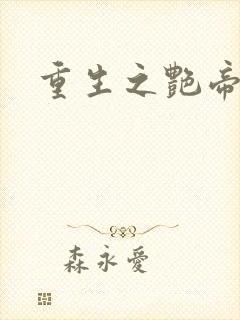 重生之艷帝
森永愛